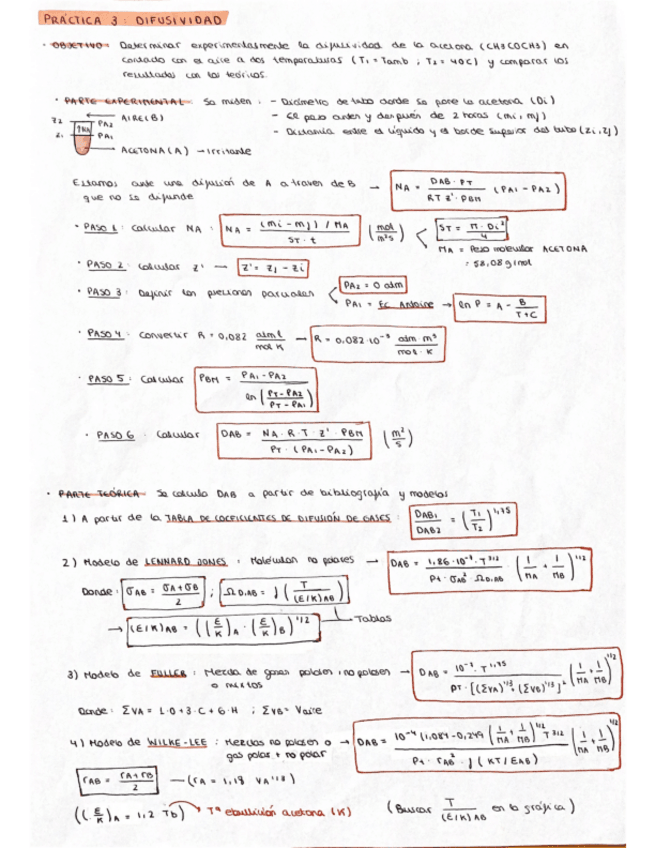 PRÁCTICA 3: DIFUSIVIDAD
· OBJETIVO: Determinar experimentalmente la difusividad de la acetona (CH3COCH3) en
contacto con el aire a dos temperaturas (T1 = Tamb ; T2 = 40C) y comparar los
resultados con los teóricos.
· PARTE EXPERIMENTAL Se miden: - Diámetro de tubo donde se pone la acetona (Di)
- El peso antes y después de 2 horas (mi, mj)
- Distancia entre el líquido y el borde superior del tubo (Zi, Zj)
Z2 PA2 ← AIRE (B)
Z1 NA PA1
→ ACETONA (A) → Irritante
Estamos ante una difusión de A a traves de B → NA = DAB · PT / RT Z' · PBM (PA1 - PA2)
que no se difunde
· PASO 1: Calcular NA : NA = (mi - mj) / MA / ST · t (mol / m²s) < ST = π · Di² / 4
MA = Peso molecular ACETONA
: 58,08 g/mol
· PASO 2: Calcular Z' → Z' = Zj - Zi
· PASO 3: Definir las presiones parciales < PA2 = 0 atm
PA1 = Ec Antoine → ln P = A - B / T+C
· PASO 4: Convertir R = 0,082 atm l / mol K → R = 0,082·10⁻³ atm m³ / mol · K
· PASO 5: Calcular PBM = PA1 - PA2 / ln (PT - PA2 / PT - PA1)
· PASO 6: Calcular DAB = NA · R · T · Z' · PBM / PT · (PA1 - PA2) (m² / s)
· PARTE TEÓRICA Se calcula DAB a partir de bibliografía y modelos
1) A partir de la TABLA DE COEFICIENTES DE DIFUSIÓN DE GASES : DAB1 / DAB2 = (T1 / T2)^1,75
2) Modelo de LENNARD JONES : Moléculas no polares → DAB = 1,86·10⁻⁷ · T^3/2 / Pt · σAB² · ΩD,AB · (1/MA + 1/MB)^1/2
Donde: σAB = σA + σB / 2 ; ΩD,AB = f (T / (E/K)AB)
→ (E/K)AB = ((E/K)A · (E/K)B)^1/2 Tablas
3) Modelo de FULLER : Mezcla de gases polares, no polares → DAB = 10⁻⁷ · T^1,75 / PT · [(ΣVA)^1/3 + (ΣVB)^1/3]² (1/MA + 1/MB)^1/2
o mixtos
Donde: ΣVA = 1·O + 3·C + 6·H ; ΣVB = Vaire
4) Modelo de WILKE-LEE : Mezclas no polares o → DAB = 10⁻⁴ (1,084 - 0,249 (1/MA + 1/MB)^1/2 T^3/2 / Pt · rAB² · f (KT / EAB) (1/MA + 1/MB)^1/2
gas polar + no polar
rAB = rA + rB / 2 — (rA = 1,18 VA^1/3)
((E/K)A = 1,2 Tb) → Tª ebullición acetona (K) (Buscar T / (E/K)AB en la gráfica)